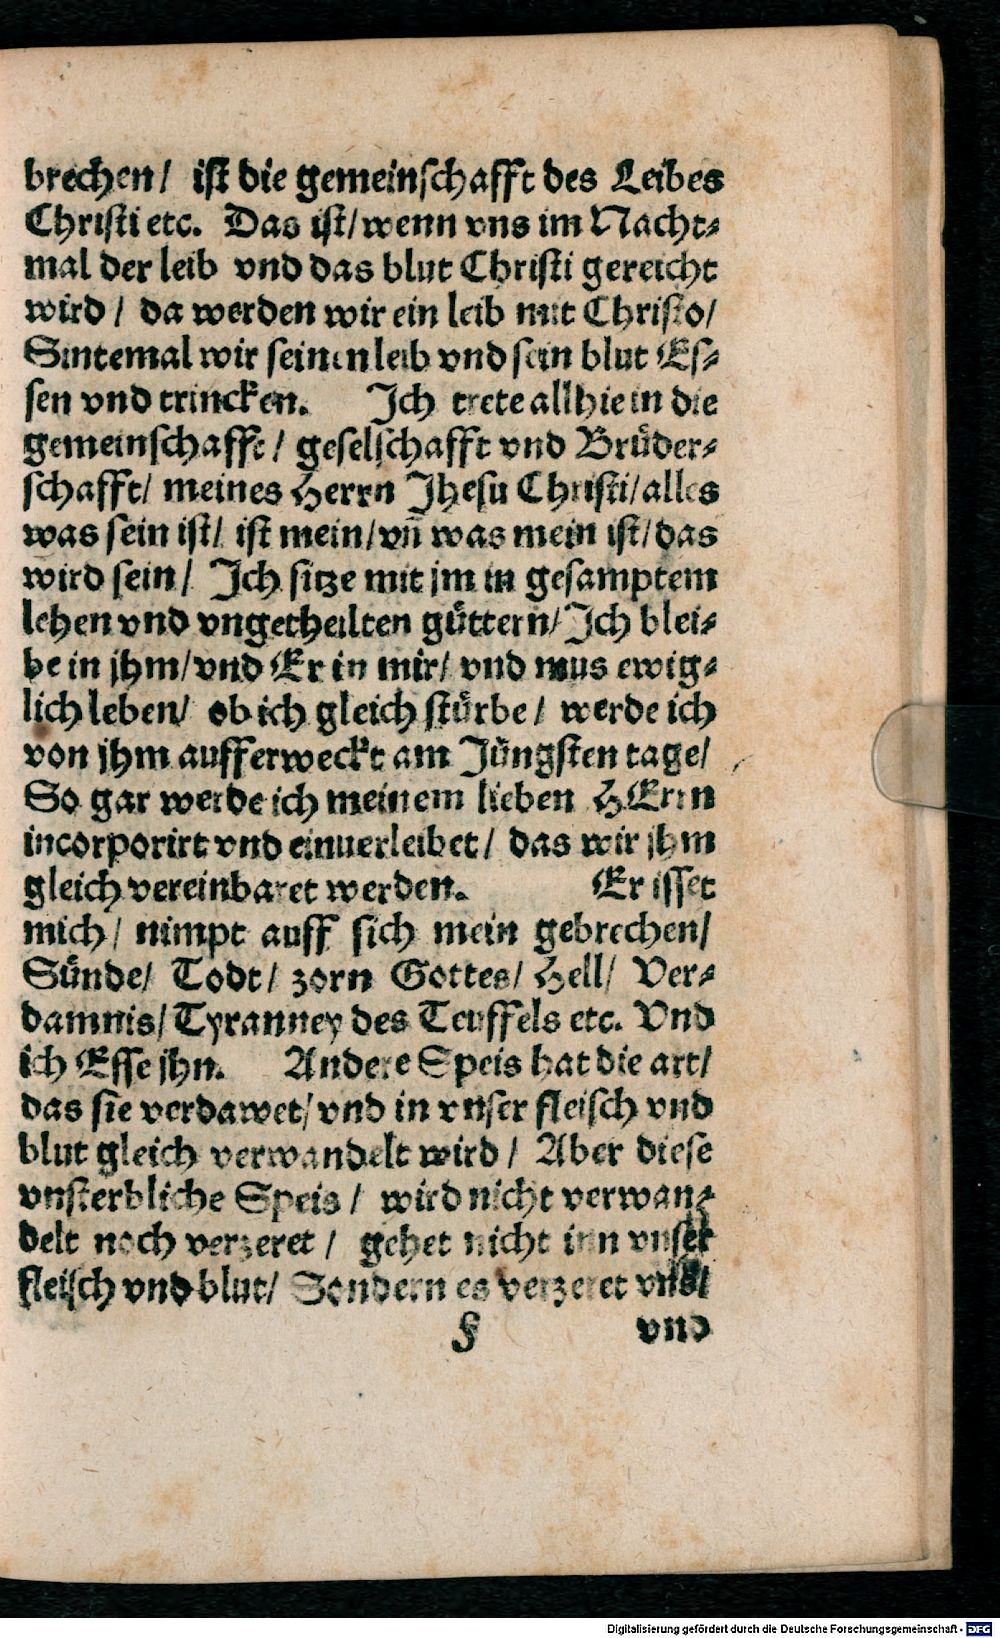 brechen/ ist die gemeinschafft des Leibes
Christi etc. Das ist/ wenn vns im Nacht⸗
mal der leib vnd das blut Christi gereicht
wird / da werden wir ein leib mit Christo/
Sintemal wir seinen leib vnd sein blut Es⸗
sen vnd trincken. Ich trete allhie in die
gemeinschafft/ geselschafft vnd Brüder⸗
schafft/ meines Herrn Jhesu Christi/ alles
was sein ist/ ist mein/ vn̄ was mein ist/ das
wird sein/ Ich sitze mit jm in gesamptem
lehen vnd vngetheilten güttern/ Ich blei⸗
be in jhm/ vnd Er in mir/ vnd mus ewig⸗
lich leben/ ob ich gleich stürbe / werde ich
von jhm aufferweckt am Jüngsten tage/
So gar werde ich meinem lieben HErrn
incorporirt vnd einuerleibet/ das wir jhm
gleich vereinbaret werden. Er isset
mich/ nimpt auff sich mein gebrechen/
Sünde/ Todt/ zorn Gottes/ Hell/ Ver⸗
damnis/ Tyranney des Teuffels etc. Vnd
ich Esse jhn. Andere Speis hat die art/
das sie verdawet/ vnd in vnser fleisch vnd
blut gleich verwandelt wird / Aber diese
vnsterbliche Speis / wird nicht verwan⸗
delt noch verzeret / gehet nicht inn vnser
fleisch vnd blut/ Sondern es verzeret vns/
§ vnd
Digitalisierung gefördert durch die Deutsche Forschungsgemeinschaft - DFG